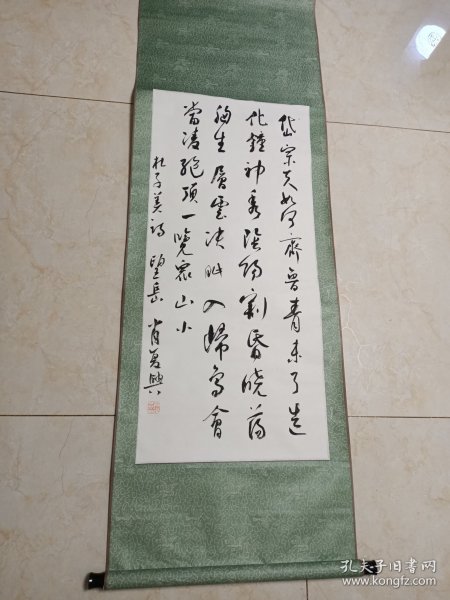 岱宗夫如何齊魯青未了造
化鍾神秀陰陽割昏曉蕩
胸生層雲決眦入歸鳥會
當凌絕頂一覽眾山小
杜子美詩望岳 肖夏興
孔夫子旧书网
www.kongfz.com